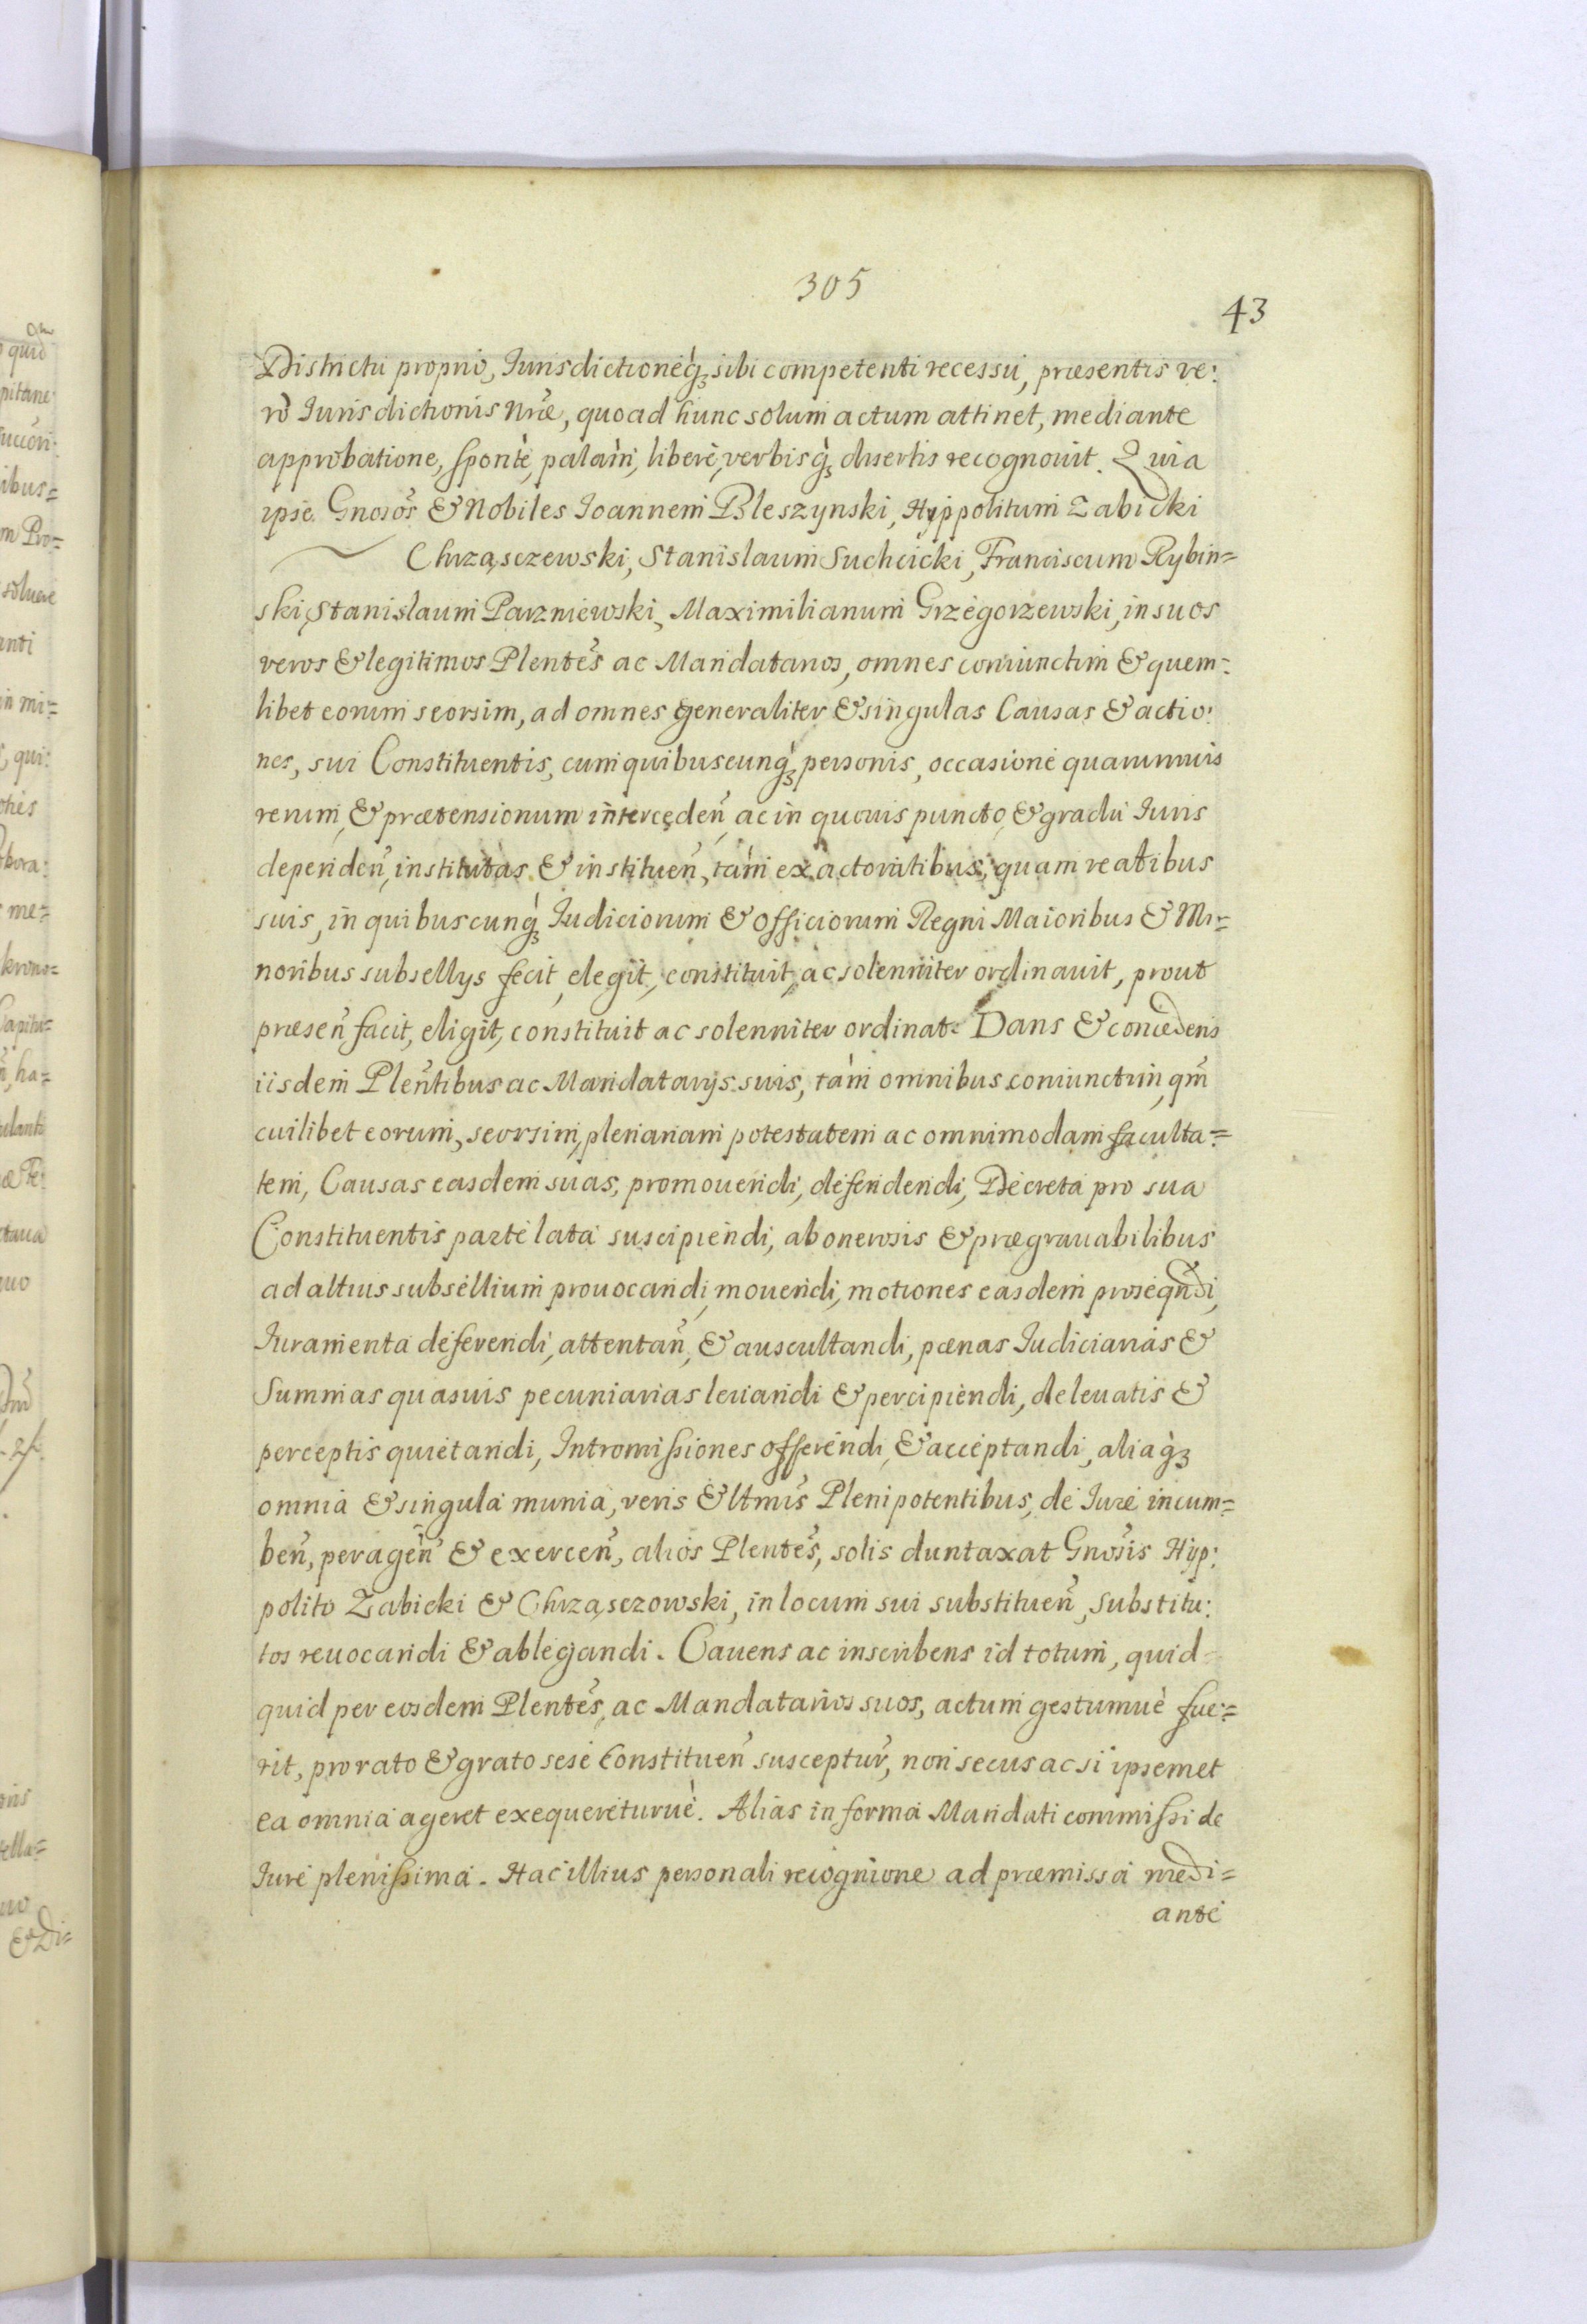 305
43
Districtu proprio, Iurisdictioneq́ꝫ sibi competenti recessu, præsentis ve:
rò Iurisdictionis Nr̃æ, quo ad hunc solum actum attinet, mediante
approbatione, sponte, palàm, liberè, verbisq́ꝫ disertis recognovit. Quia
ipse Gnosos̃ & Nobiles Ioannem Bleszynski, Hyppolitum Zabicki
Chrząsczewski, Stanislaum Suchcicki, Franciscum Rybin=
ski, Stanislaum Parzniewski, Maximilianum Grzegorzewski, in suos
veros & legitimos Plentes̃ ac Mandatarios, omnes coniunctim & quem=
libet eorum seorsim, ad omnes generaliter & singulas Causas & actio:
nes, sui Constituentis, cum quibuscunq́ꝫ personis, occasione quarumuis
rerum, & prætensionum interceden̄, ac in quouis puncto, & gradu Iuris
dependen̄, institutas & instituen̄, tám ex actoratibus, quam reatibus
suis, in quibuscunq́ꝫ Iudiciorum & Officiorum Regni Maioribus & Mi=
noribus subsellijs fecit, elegit, constituit, ac solenniter ordinauit, prout
præsen̄ facit, eligit, constituit ac solenniter ordinat. Dans & concedens
iisdem Plen̄tibus ac Mandatarijs suis, tám omnibus coniunctim, qm̃
cuilibet eorum, seorsim, plenariam potestatem ac omnimodam faculta=
tem, Causas easdem suas, promouendi, defendendi, Decreta pro sua
Constituentis parte lata suscipiendi, ab onerosis & prægrauabilibus
ad altius subsellium prouocandi, mouendi, motiones easdem proseqñdi,
Iuramenta deferendi, attentan̄, & auscultandi, pænas Iudiciarias &
Summas quasuis pecuniarias leuandi & percipiendi, de leuatis &
perceptis quietandi, Intromissiones offerendi, & acceptandi, aliaq́ꝫ
omnia & singula munia, veris & ltmis̃ Plenipotentibus, de Iure incum=
ben̄, peragen̄ & exercen̄, alios Plentes̃, solis duntaxat Gnosis̃ Hyp:
polito Zabicki & Chrząsczowski, in locum sui substituen̄, substitu:
tos reuocandi & ablegandi. Cauens ac inscribens id totum, quid=
quid per eosdem Plentes̃, ac Mandatarios suos, actum gestumuè fue=
rit, pro rato & grato sese Constituen̄ susceptur̃, non secus ac si ipsemet
ea omnia ageret exequereturuè. Alias in forma Mandati commissi de
Iure plenissima. Hac illius personali recognione ad præmissa medi=
ante